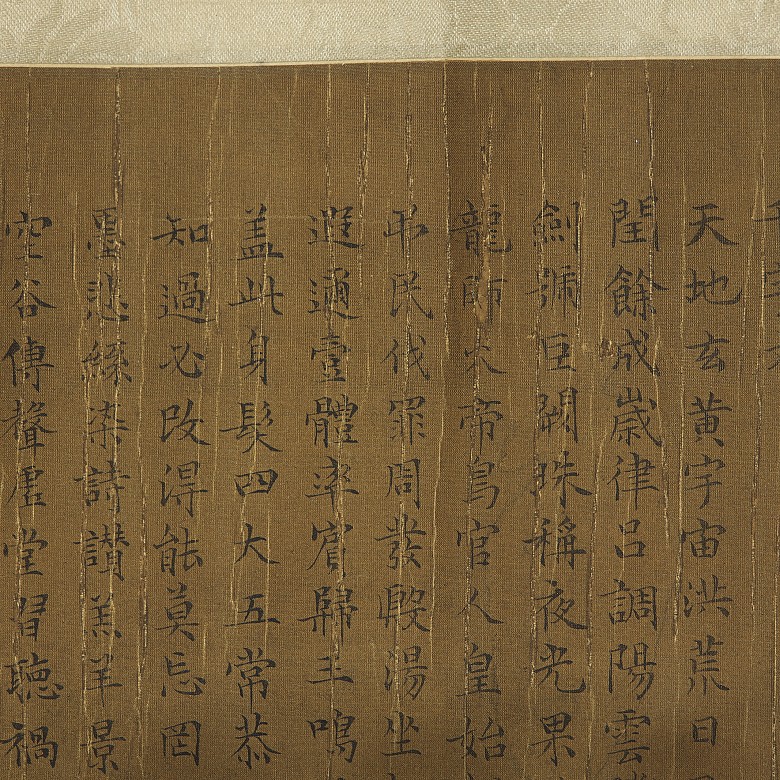 千字文
天地玄黄宇宙洪荒日
閏餘成歲律呂調陽雲
劍號巨闕珠稱夜光果
龍師火帝鳥官人皇始
弔民伐罪周發殷湯坐
遐邇壹體率賓歸王鳴
蓋此身髮四大五常恭
知過必改得能莫忘罔
墨悲絲染詩讃羔羊景
空谷傳聲虛堂習聽禍